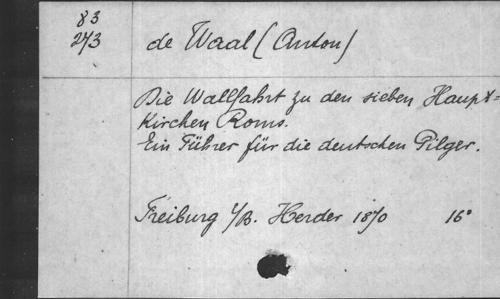 83
273
de Waal (Anton)
Die Wallfahrt zu den sieben Haupt=
Kirchen Roms.
Ein Führer für die deutschen Pilger.
Freiburg i/B. Herder 1870 16°